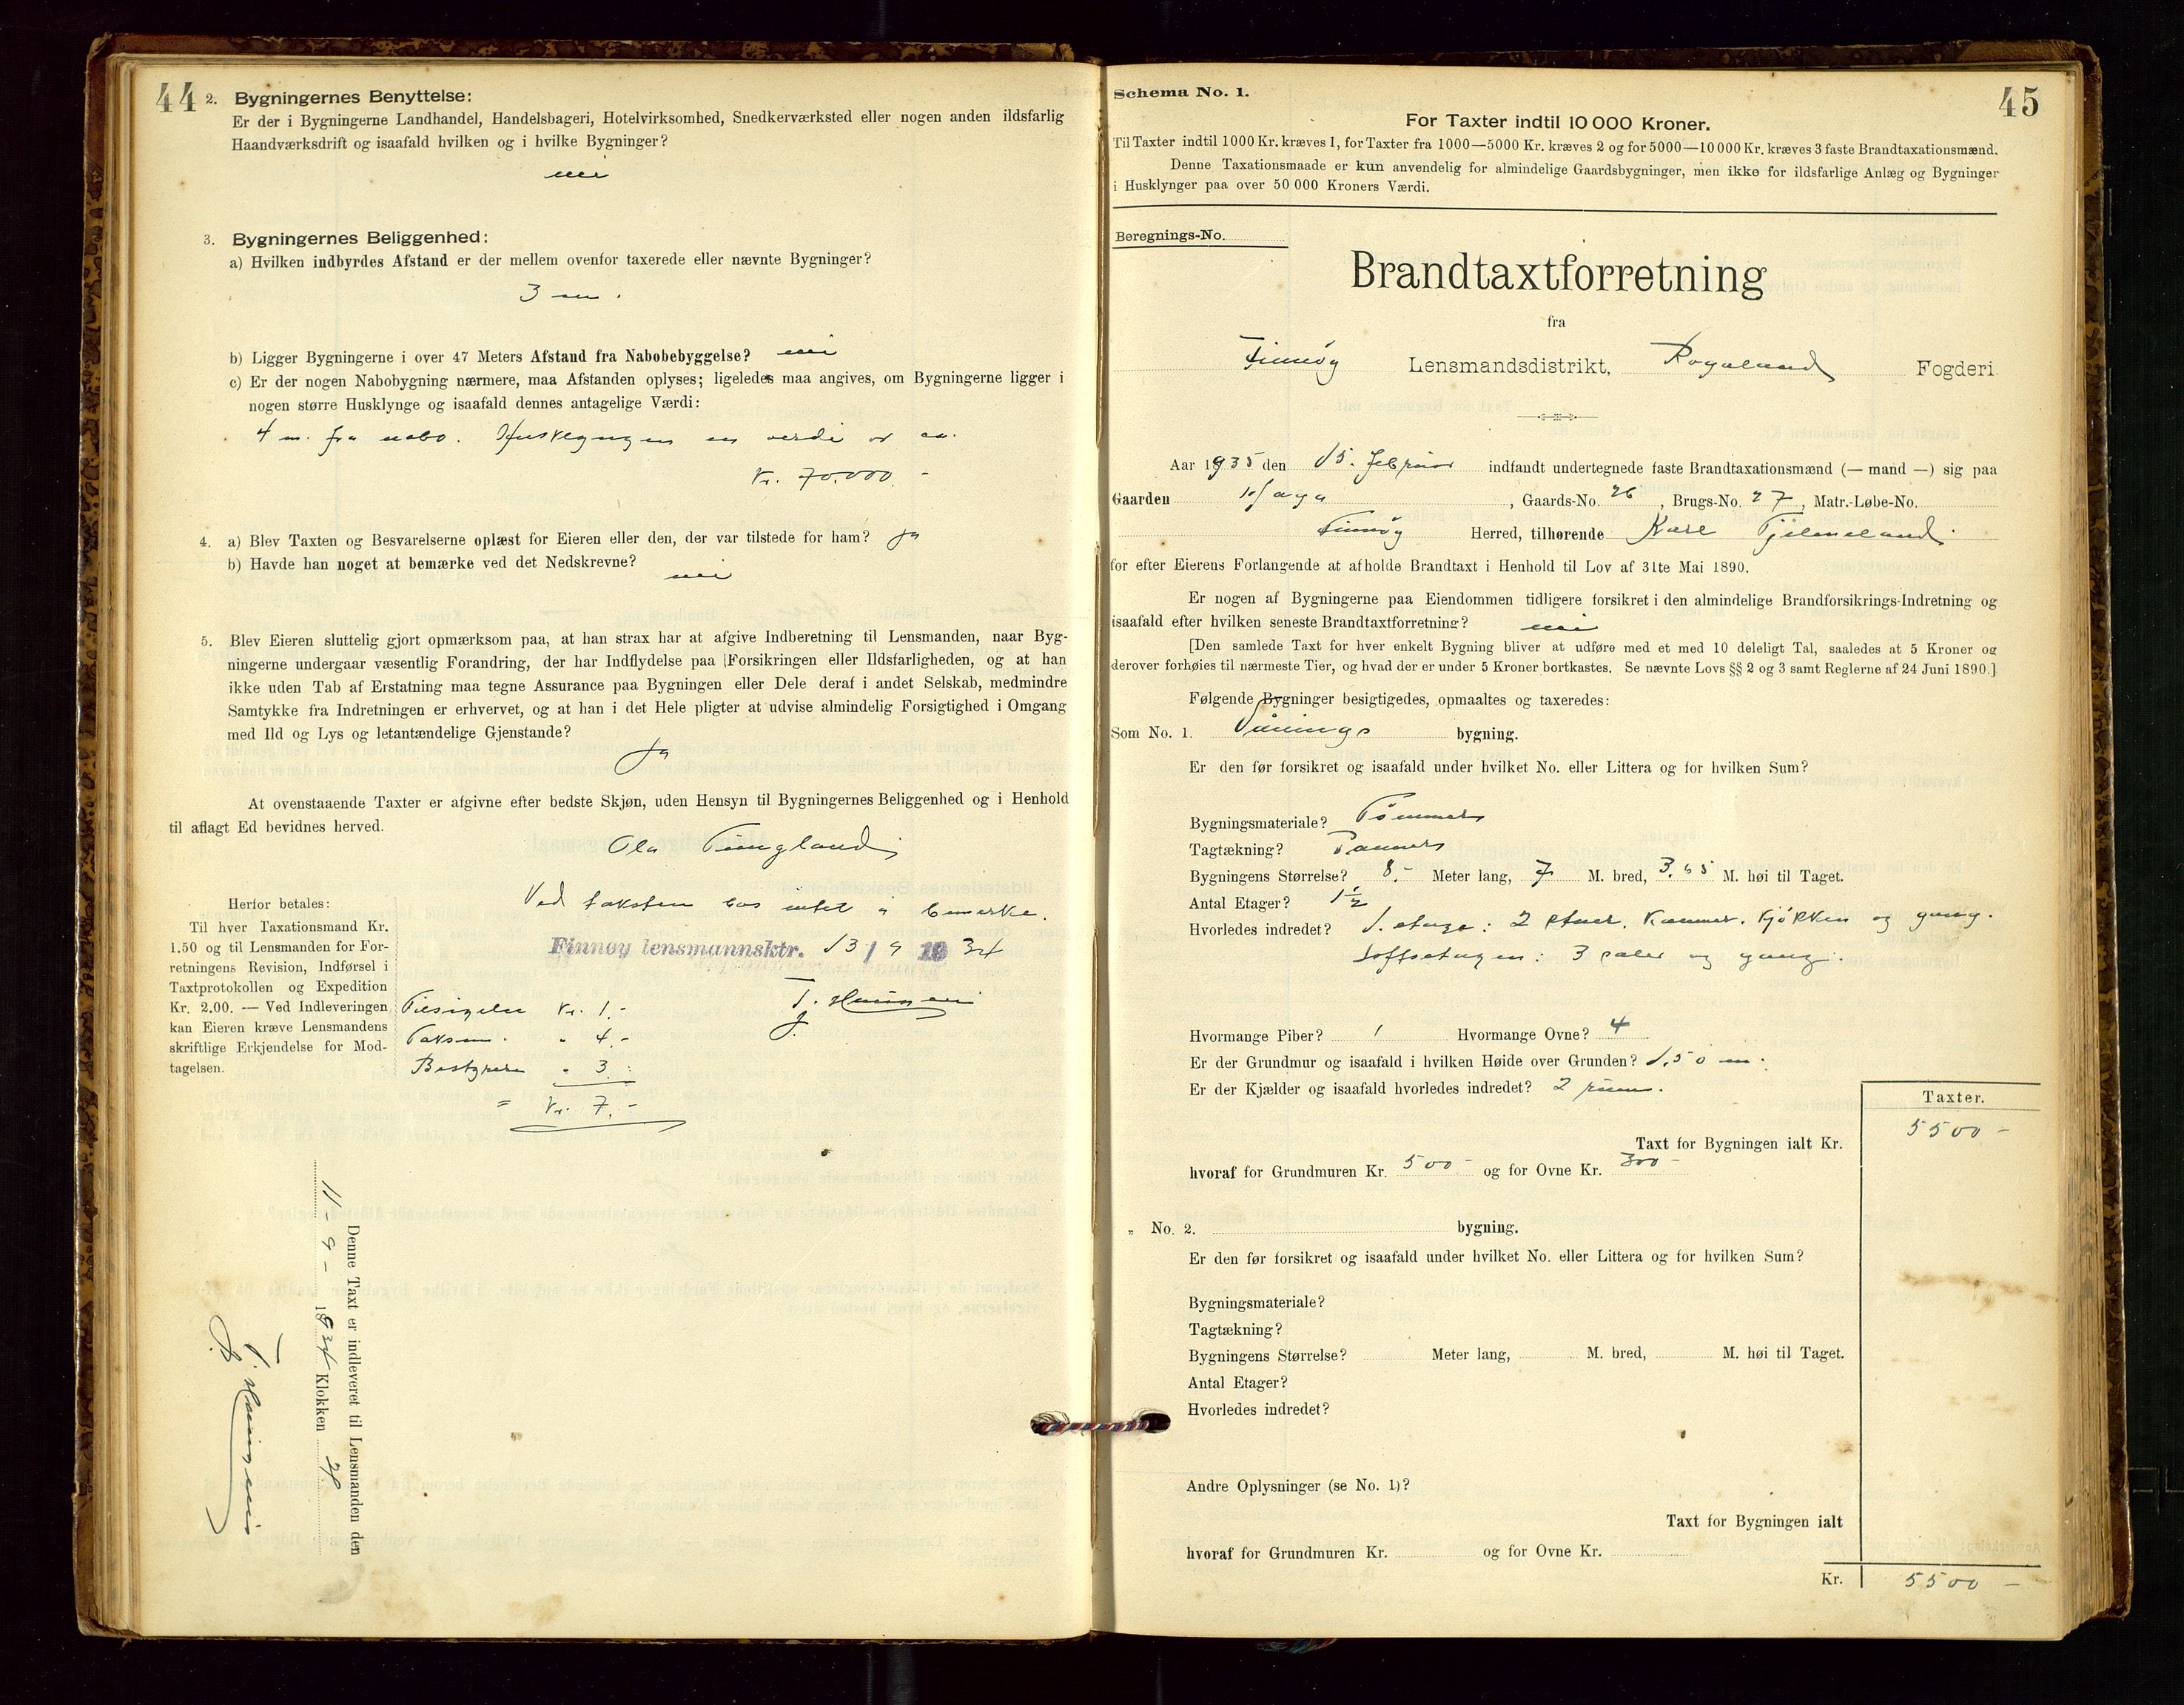 44
2. Bygningernes Benyttelse:
Er der i Bygningerne Landhandel, Handelsbageri, Hotelvirksomhed, Snedkerværksted eller nogen anden ildsfarlig
Haandværksdrift og isaafald hvilken og i hvilke Bygninger?
nei
3. Bygningernes Beliggenhed:
a) Hvilken indbyrdes Afstand er der mellem ovenfor taxerede eller nævnte Bygninger?
3 m.
b) Ligger Bygningerne i over 47 Meters Afstand fra Nabobebyggelse? nei
c) Er der nogen Nabobygning nærmere, maa Afstanden oplyses; ligeledes maa angives, om Bygningerne ligger i
nogen større Husklynge og isaafald dennes antagelige Værdi:
4 m. fra nabo. en verdi av ca.
Kr. 70.000.-
4. a) Blev Taxten og Besvarelserne oplæst for Eieren eller den, der var tilstede for ham? ja
b) Havde han noget at bemærke ved det Nedskrevne? nei
5. Blev Eieren sluttelig gjort opmærksom paa, at han strax har at afgive Indberetning til Lensmanden, naar Byg-
ningerne undergaar væsentlig Forandring, der har Indflydelse paa Forsikringen eller Ildsfarligheden, og at han
ikke uden Tab af Erstatning maa tegne Assurance paa Bygningen eller Dele deraf i andet Selskab, medmindre
Samtykke fra Indretningen er erhvervet, og at han i det Hele pligter at udvise almindelig Forsigtighed i Omgang
med Ild og Lys og letantændelige Gjenstande?
Ja
At ovenstaaende Taxter er afgivne efter bedste Skjøn, uden Hensyn til Bygningernes Beliggenhed og i Henhold
til aflagt Ed bevidnes herved.
Ola
Ved taksten has intet å bemerke.
Finnøy lensmannsktr. 13/9 19 34
Herfor betales:
Til hver Taxationsmand Kr.
1.50 og til Lensmanden for For-
retningens Revision, Indførsel i
Taxtprotokollen og Expedition
Kr. 2.00. — Ved Indleveringen
kan Eieren kræve Lensmandens
skriftlige Erkjendelse for Mod-
tagelsen.
Kr. 1.-
" 4.-
Bestyrer " 3.-
= Kr. 7.-
Denne Taxt er indleveret til Lensmanden den
11 - 9 - 1934 Klokken
45
Schema No. 1.
For Taxter indtil 10 000 Kroner.
Til Taxter indtil 1000 Kr. kræves 1, for Taxter fra 1000—5000 Kr. kræves 2 og for 5000—10 000 Kr. kræves 3 faste Brandtaxationsmænd.
Denne Taxationsmaade er kun anvendelig for almindelige Gaardsbygninger, men ikke for ildsfarlige Anlæg og Bygninger
i Husklynger paa over 50 000 Kroners Værdi.
Beregnings-No.
Brandtaxtforretning
fra
Finnøy Lensmandsdistrikt, Rogaland Fogderi
Aar 1935 den 15. februar indfandt undertegnede faste Brandtaxationsmænd (— mand —) sig paa
Gaarden Haga, Gaards-No. 26, Brugs-No. 27, Matr.-Løbe-No.
Finnøy Herred, tilhørende Karl
for efter Eierens Forlangende at afholde Brandtaxt i Henhold til Lov af 31te Mai 1890.
Er nogen af Bygningerne paa Eiendommen tidligere forsikret i den almindelige Brandforsikrings-Indretning og
isaafald efter hvilken seneste Brandtaxtforretning? nei
[Den samlede Taxt for hver enkelt Bygning bliver at udføre med et med 10 deleligt Tal, saaledes at 5 Kroner og
derover forhøies til nærmeste Tier, og hvad der er under 5 Kroner bortkastes. Se nævnte Lovs §§ 2 og 3 samt Reglerne af 24 Juni 1890.]
Følgende Bygninger besigtigedes, opmaaltes og taxeredes:
Som No. 1. Vånings bygning.
Er den før forsikret og isaafald under hvilket No. eller Littera og for hvilken Sum?
Bygningsmateriale? Tømmer
Tagtækning? Panner
Bygningens Størrelse? 8.- Meter lang, 7 M. bred, 3.65 M. høi til Taget.
Antal Etager? 1½
Hvorledes indredet? 1. etage: 2 stuer, kammer, kjøkken og gang.
Loftsetagen: 3 saler og gang.
Hvormange Piber? 1 Hvormange Ovne? 4
Er der Grundmur og isaafald i hvilken Høide over Grunden? 1.50 m.
Er der Kjælder og isaafald hvorledes indredet? 2 rum.
Taxter.
Taxt for Bygningen ialt Kr. 5500 -
hvoraf for Grundmuren Kr. 500 - og for Ovne Kr. 300 -
" No. 2. bygning.
Er den før forsikret og isaafald under hvilket No. eller Littera og for hvilken Sum?
Bygningsmateriale?
Tagtækning?
Bygningens Størrelse? Meter lang, M. bred, M. høi til Taget.
Antal Etager?
Hvorledes indredet?
Andre Oplysninger (se No. 1)?
Taxt for Bygningen ialt
hvoraf for Grundmuren Kr. og for Ovne Kr.
Kr. 5500 -